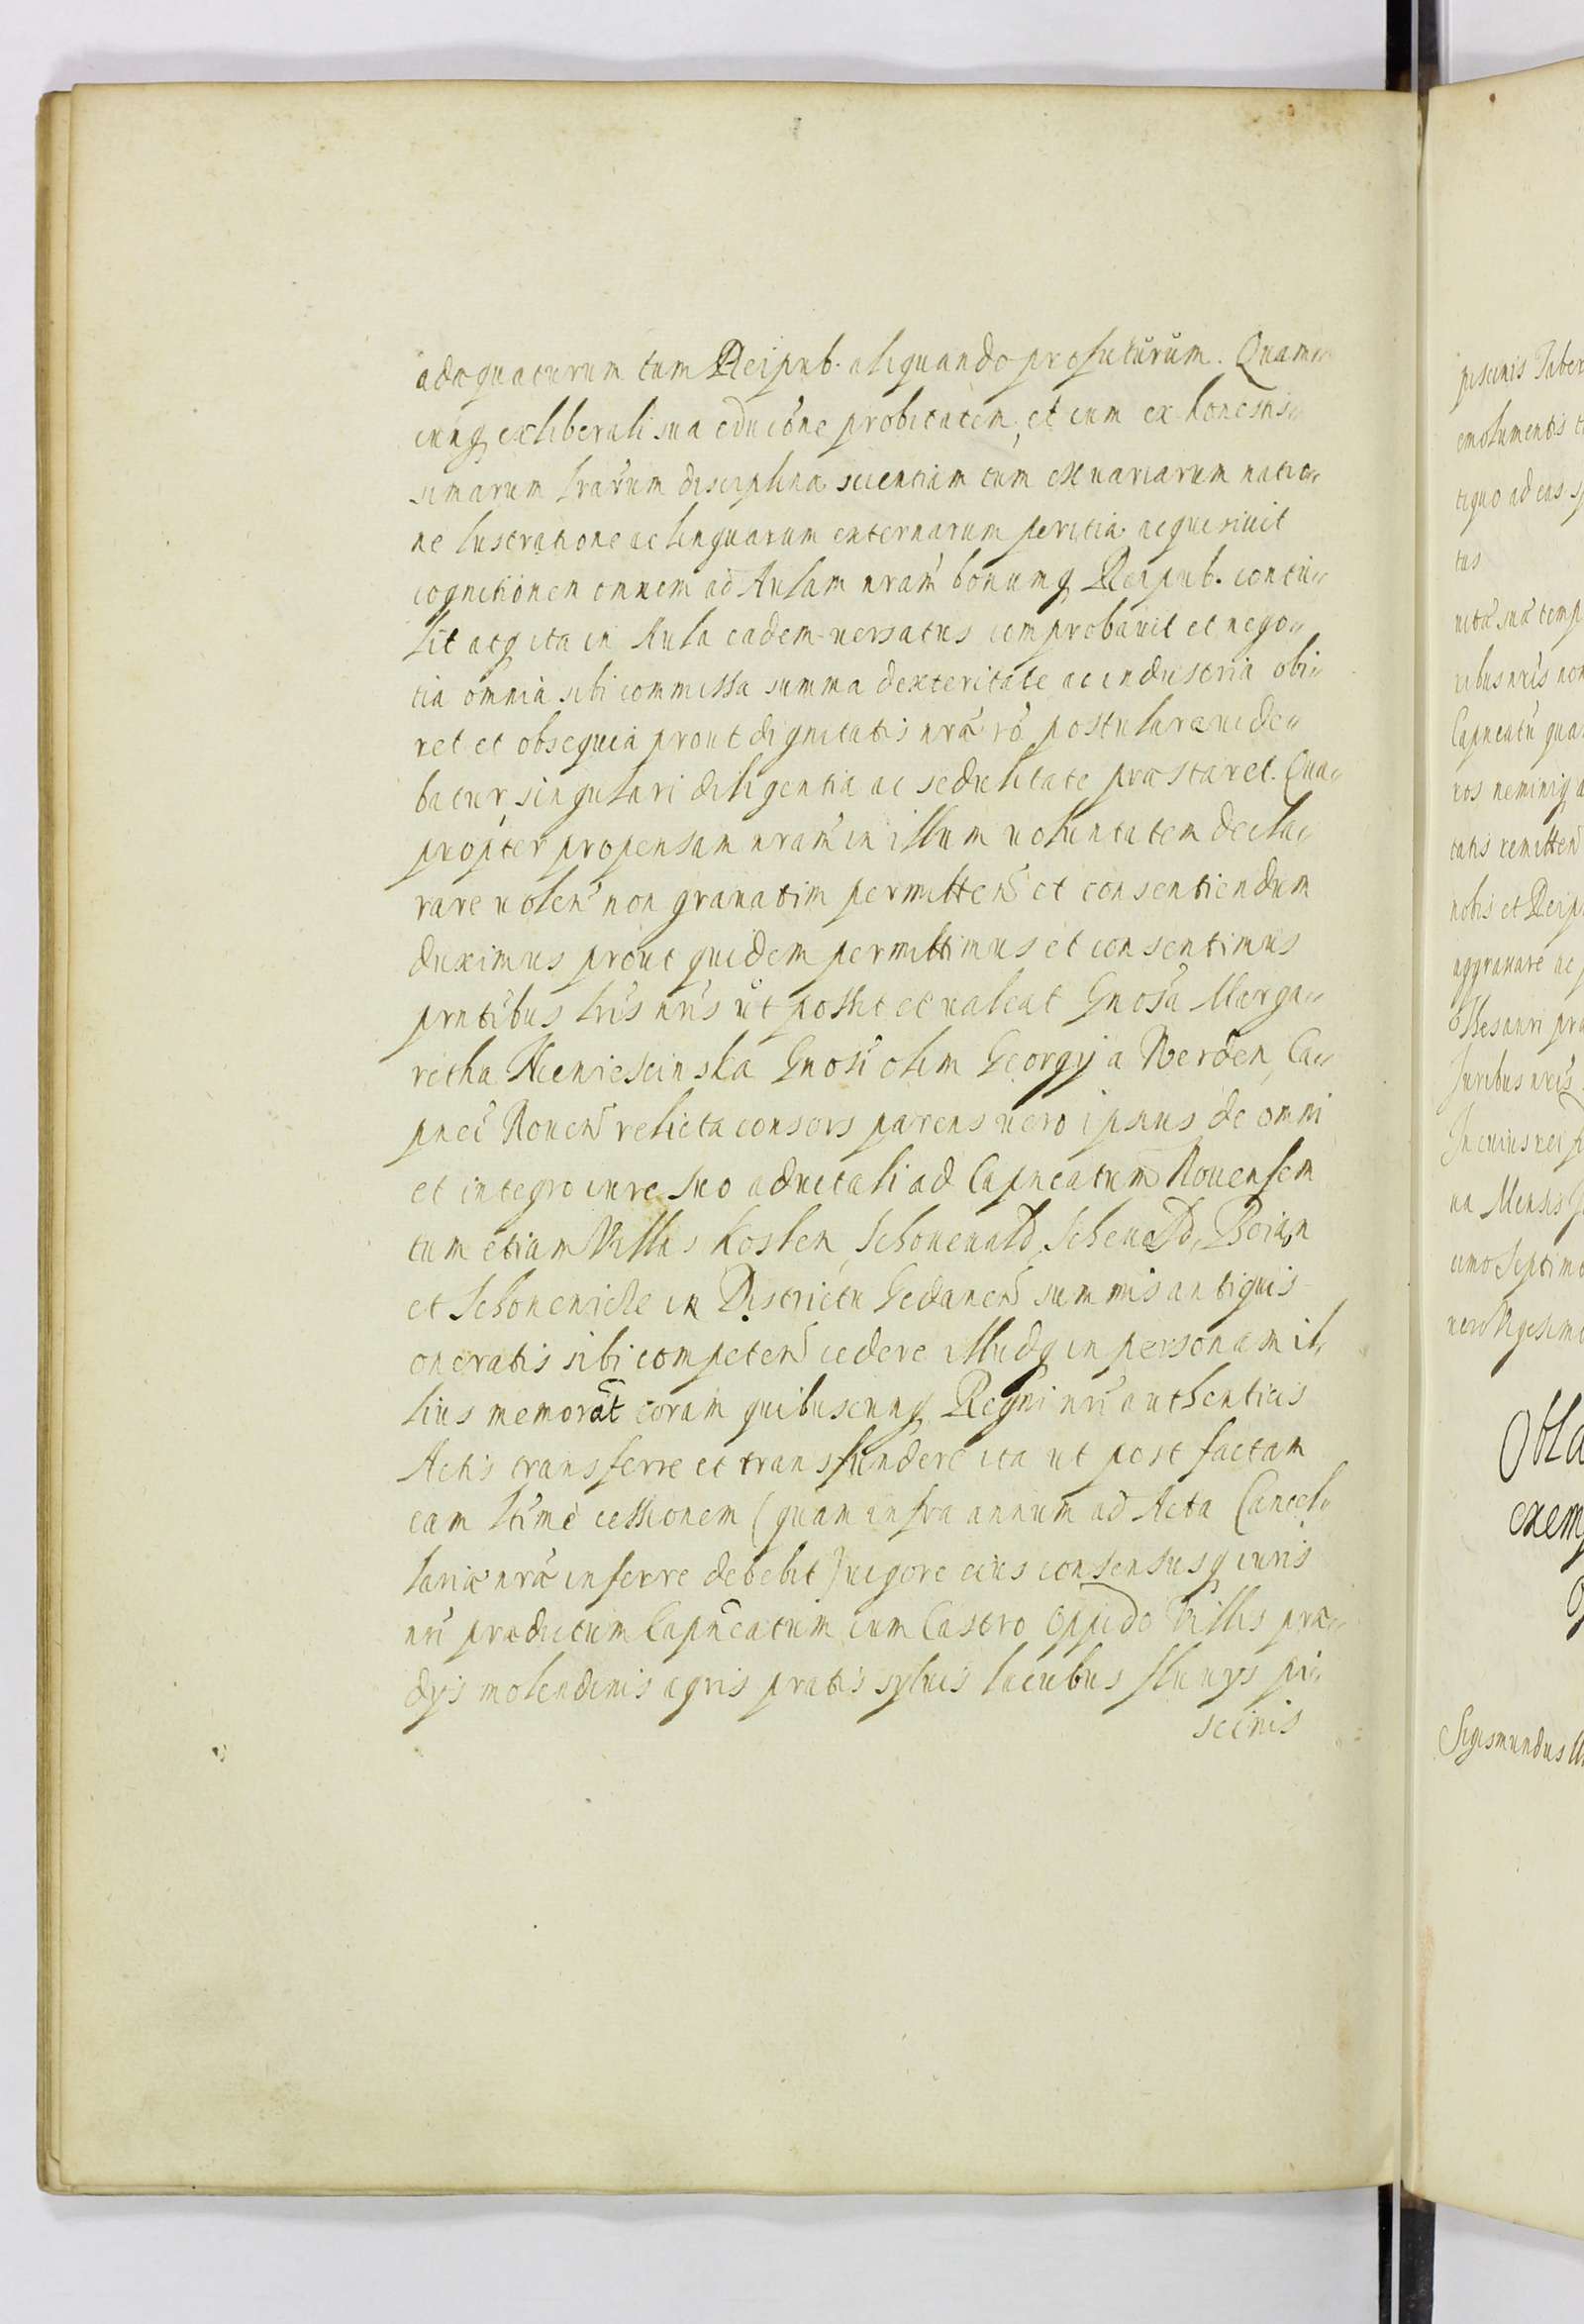 adæquaturum tum Reipub. aliquando profuturum. Quam
cunq, ex liberali sua educõne probitatem, et cum ex honestis-
simarum lrarum disciplina scientiam tum ex variarum natio-
ne lustratione ac linguarum externarum peritia acquisivit
cognitionem omnem ad Aulam nram bonumq Reipub. contu-
lit atq ita in Aula eadem versatus comprobavit et nego-
tia omnia sibi commissa summa dexteritate ac industria obi-
ret et obsequia prout dignitatis nræ rõ postulare vide-
batur, singulari diligentia ac sedulitate præstaret. Qua-
propter propensam nram in illum voluntatem decla-
rare volen non gravatim permitten et consentiendum
duximus prout quidem permittimus et consentimus
prntibus lris nris ut possit et valeat Gnosa Marga-
retha Wieniescinska Gnosi olim Georgij a Werden Ca-
pnei Noven relicta consors parens vero ipsius de omni
et integro iure suo advitali ad Capneatum Novensem
tum etiam Villas Koslen, Schonenald, Schenald, Boian
et Schonenicle in Districtu Gedanen summis antiquis
oneratis sibi competen cedere illudq in personam il-
lius memorat coram quibuscunq Regni nri authenticis
Actis transferre et transfundere ita ut post factam
eam ltime cessionem (quam infra annum ad Acta Cancel-
lariæ nræ inferre debebit) vigore eius consensusq iuris
nri prædictum Capneatum cum Castro Oppido Villis præ-
dijs molendinis agris pratis sylvis lacubus fluvijs pi-
scinis
piscinis Taber
emolumentis
tiquo ad eas
tus
vita sua temp
ribus nris non
Capneatu qua
nos neminiq a
tatis remitten
nobis et Reip
aggravare ac
Thesauri pra
Juribus nris
In cuius rei fi
na Mensis
cimo Septimo
nero Vigesimo
Obla
exem
Sigismundus